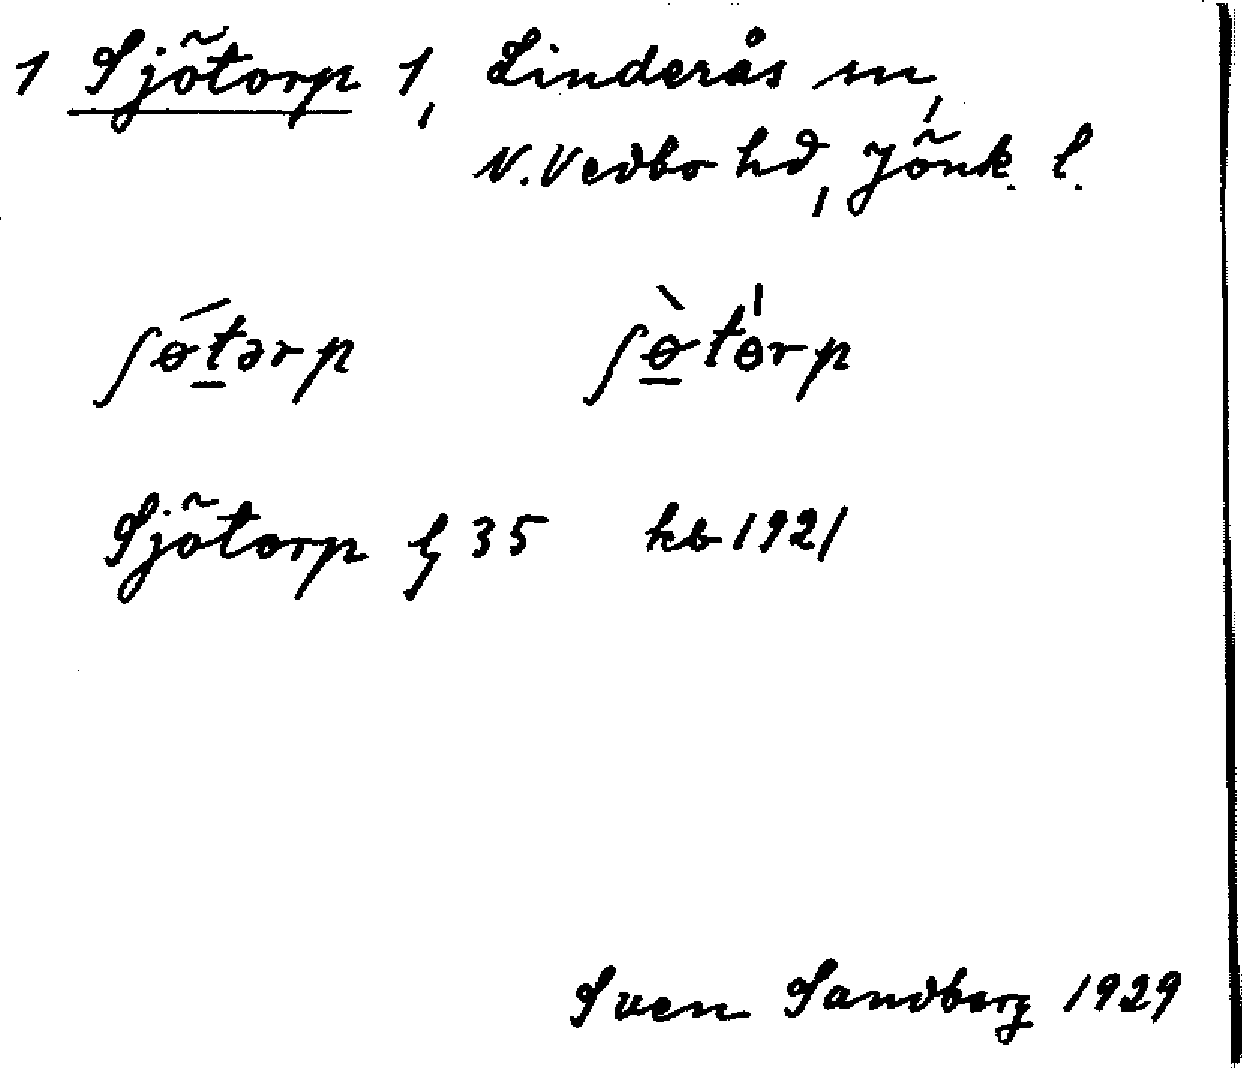 1 Sjötorp 1, Linderås sn,
N. Vedbo hd, Jönk. l.
ʃɵ́t̲ərp ʃɵ̲̀tɵ̍rp
Sjötorp lg 35 kb 1921
Sven Sandberg 1929